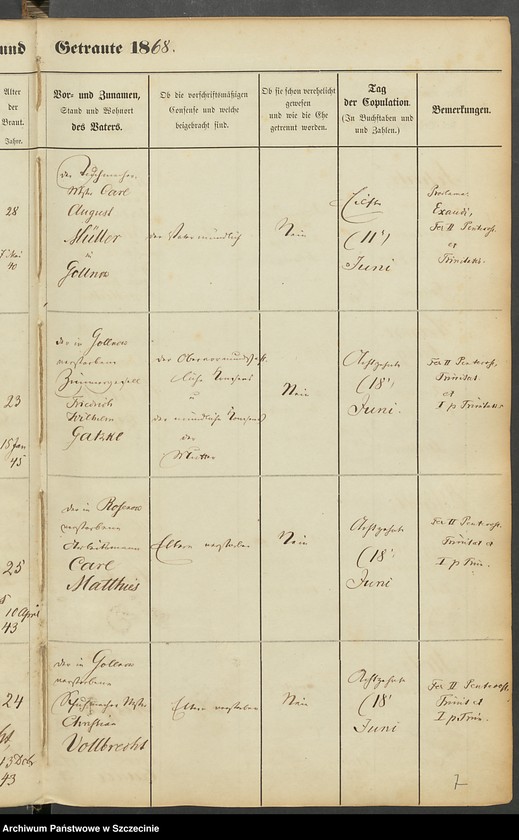 und Getraute 1868.
Alter
der
Braut.
Jahre.
Vor- und Zunamen,
Stand und Wohnort
des Vaters.
Ob die vorschriftsmäßigen
Consense und welche
beigebracht sind.
Ob sie schon verehelicht
gewesen
und wie die Ehe
getrennt worden.
Tag
der Copulation.
(In Buchstaben und
und Zahlen.)
Bemerkungen.
28
40
der Tuchmacher
Mstr Carl
August
Müller
Gollnow
der Vater mündlich
Nein
(11')
Juni
Proclamat
Exaudi,
Fer II Pentecost.
et
Trinitatis.
23
15 Jan
45
der in Gollnow
verstorbene
Zimmergesell
Friedrich
Wilhelm
Gatzke
der Obervormundschaft
liche Consens
u
der mündliche Consens
der
Mutter
Nein
Achtzehnte
(18'
Juni.
Fer II Pentecost.
Trinitat.
et
I p Trinitatis
25
10 April
43
der in Rosenow
verstorbene
Arbeitsmann
Carl
Matthies
Eltern verstorben
Nein
Achtzehnte
(18'
Juni
Fer II Pentecost.
Trinitat et
I p Trin.
24
13 Debr
43
der in Gollnow
verstorbene
Schuhmacher Mstr
Christian
Vollbrecht
Eltern verstorben
Nein
Achtzehnte
(18'
Juni
Fer II Pentecost.
Trinit et
I p Trin.
7
Archiwum Państwowe w Szczecinie